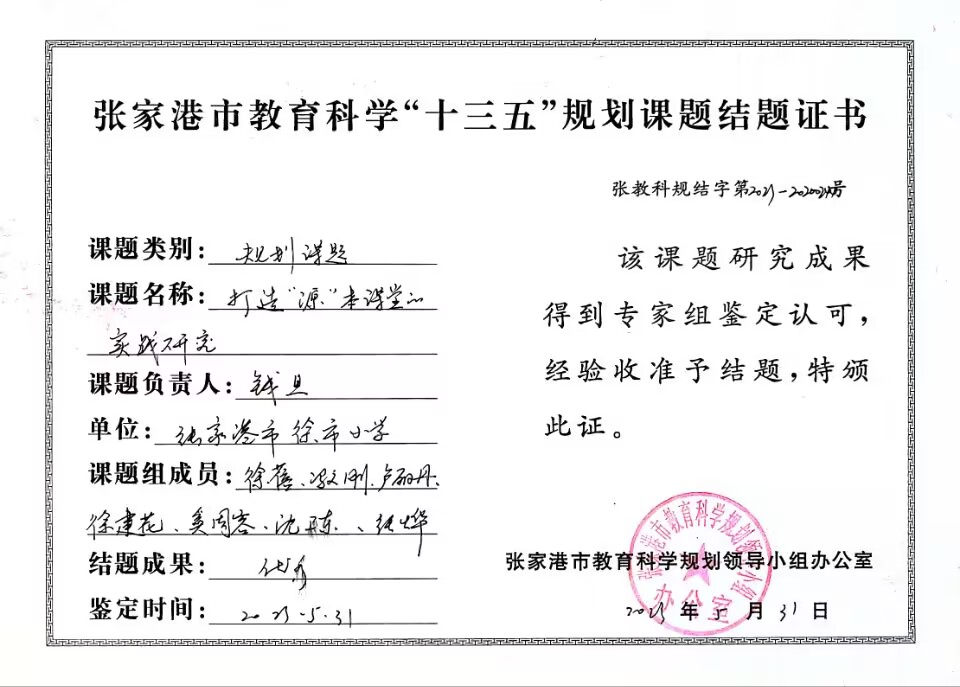 张家港市教育科学“十三五”规划课题结题证书
张教科规结字第号
课题类别：规划课题
课题名称：打造“源”本课堂的
实践研究
课题负责人：钱旦
单位：张家港市徐市小学
课题组成员：徐蓓、刚、卢丽丹、
徐建花、奚国容、沈栋、张烨
结题成果：优秀
鉴定时间：2023.5.31
该课题研究成果
得到专家组鉴定认可，
经验收准予结题，特颁
此证。
张家港市教育科学规划领导小组办公室
2023年5月31日
张家港市教育科学规划领导小组
办公室